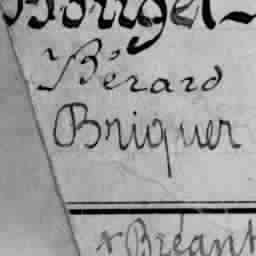 Bérard
Briquer
+ Bréant